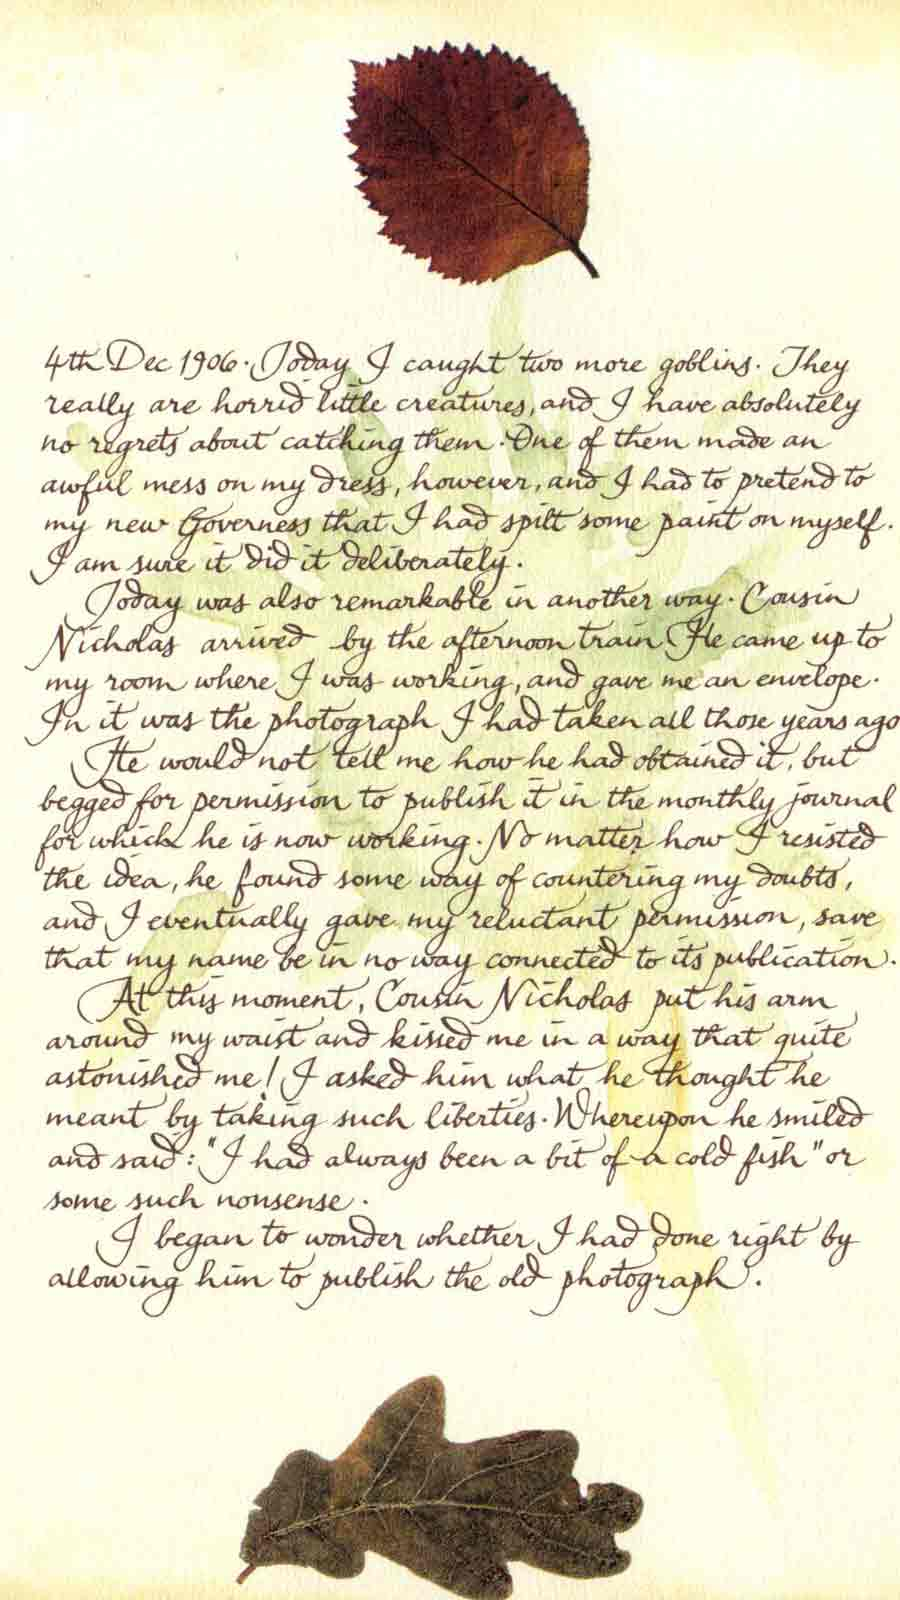 4th Dec 1906. Today I caught two more goblins. They
really are horrid little creatures, and I have absolutely
no regrets about catching them. One of them made an
awful mess on my dress, however, and I had to pretend to
my new Governess that I had spilt some paint on myself.
I am sure it did it deliberately.
Today was also remarkable in another way. Cousin
Nicholas arrived by the afternoon train He came up to
my room where I was working, and gave me an envelope.
In it was the photograph I had taken all those years ago
He would not tell me how he had obtained it, but
begged for permission to publish it in the monthly journal
for which he is now working. No matter how I resisted
the idea, he found some way of countering my doubts,
and I eventually gave my reluctant permission, save
that my name be in no way connected to its publication.
At this moment, Cousin Nicholas put his arm
around my waist and kissed me in a way that quite
astonished me! I asked him what he thought he
meant by taking such liberties. Whereupon he smiled
and said: "I had always been a bit of a cold fish" or
some such nonsense.
I began to wonder whether I had done right by
allowing him to publish the old photograph.